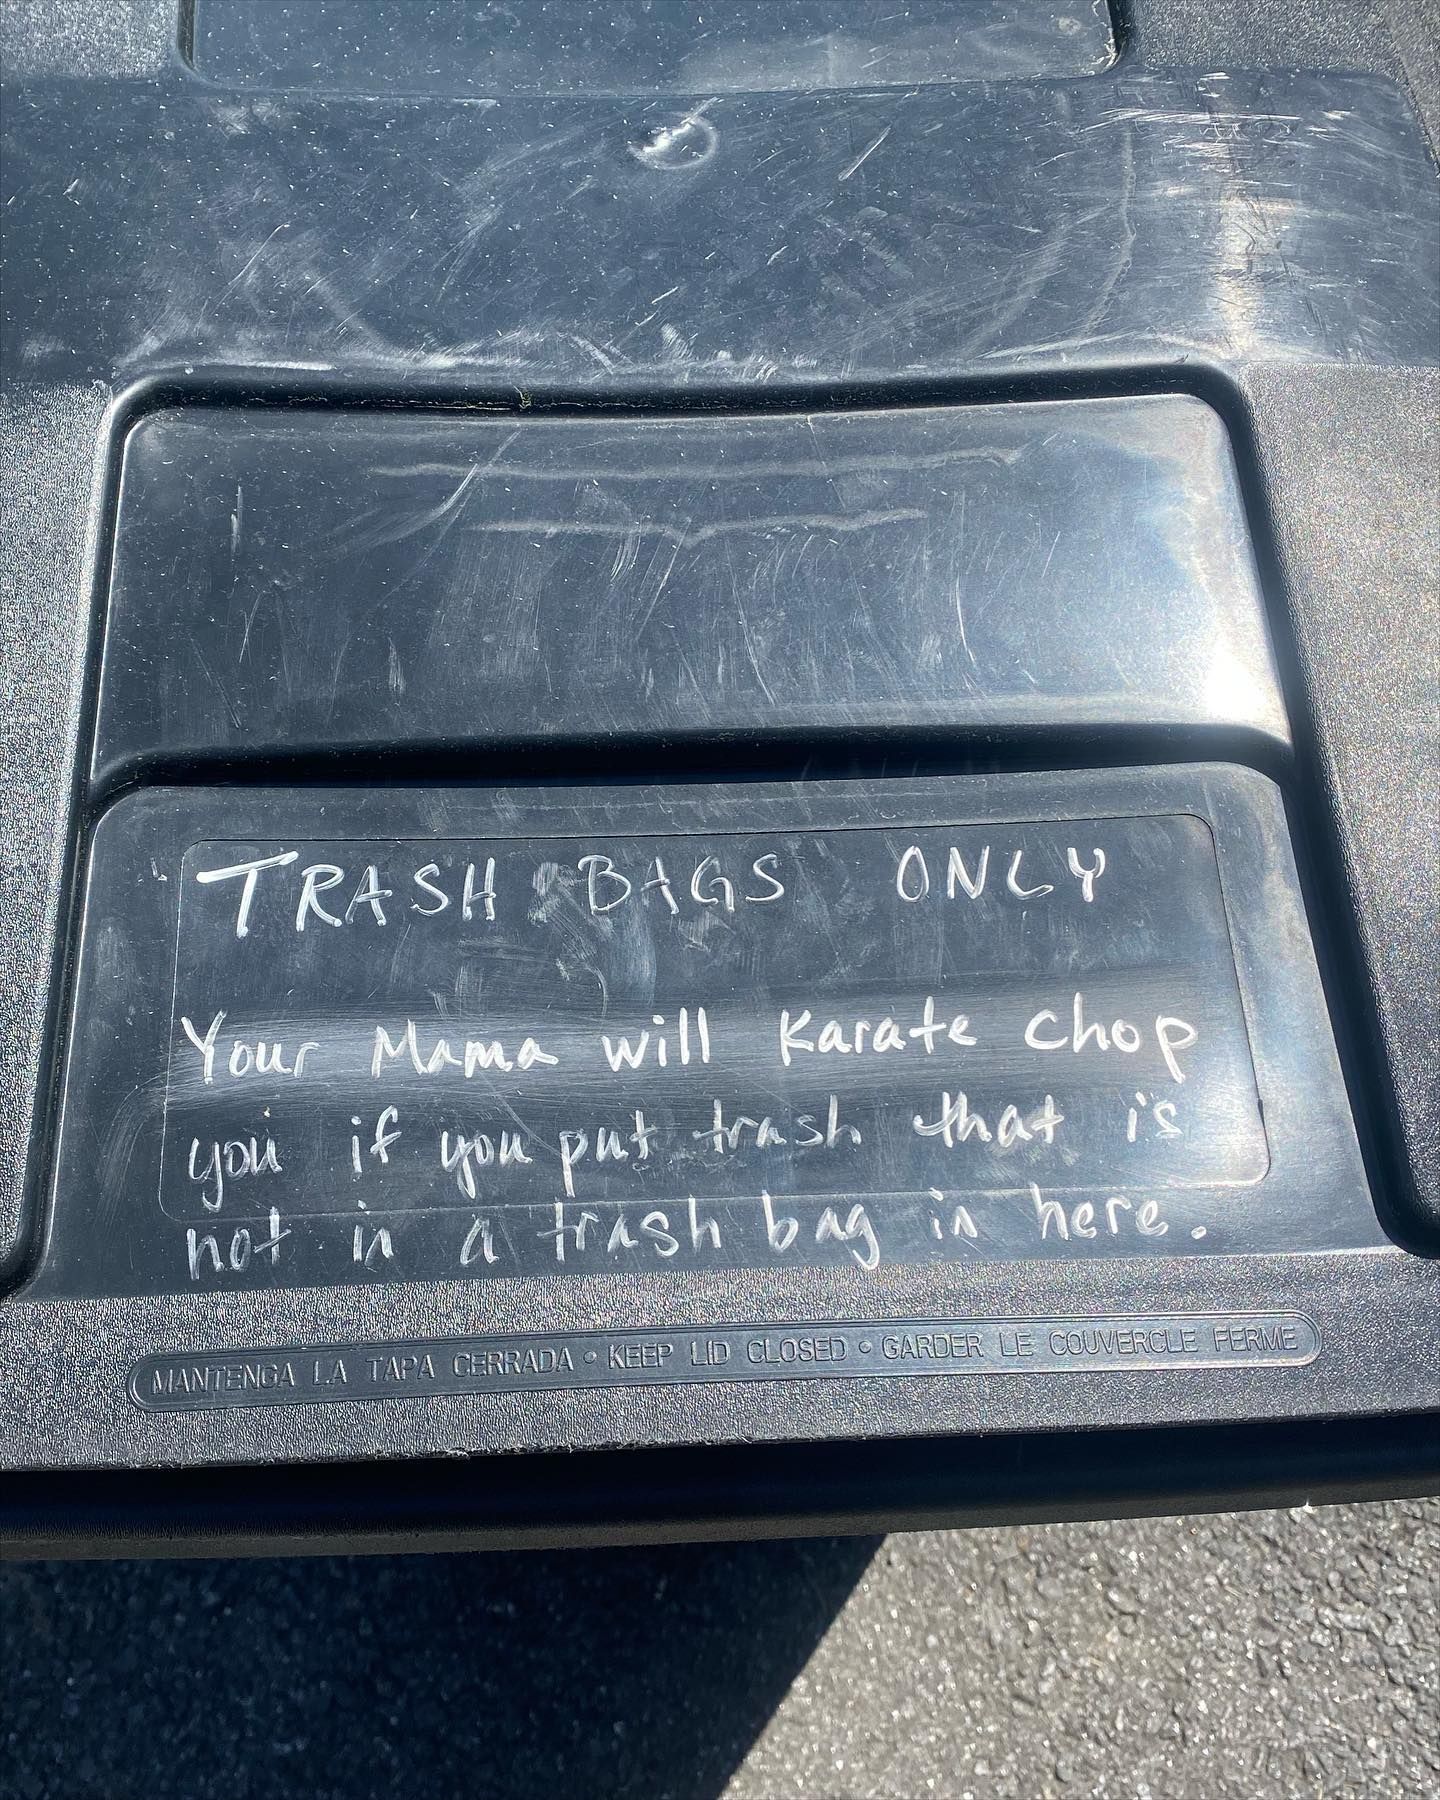 TRASH BAGS ONLY
Your Mama will Karate chop
you if you put trash that is
not in a trash bag in here.
MANTENGA LA TAPA CERRADA • KEEP LID CLOSED • GARDER LE COUVERCLE FERME